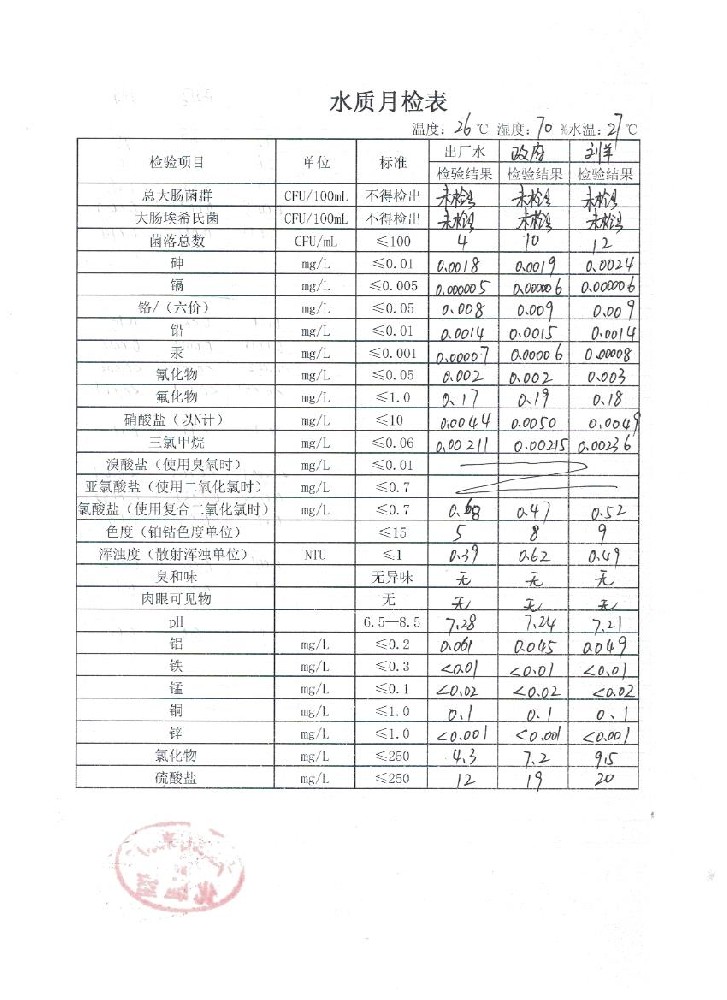 水质月检表
温度: 26 ℃ 湿度: 70 %水温: 27 ℃
检验项目 单位 标准 出厂水 政府 刘羊
检验结果 检验结果 检验结果
总大肠菌群 CFU/100mL 不得检出 未检出 未检出 未检出
大肠埃希氏菌 CFU/100mL 不得检出 未检出 未检出 未检出
菌落总数 CFU/mL ≤100 4 10 12
砷 mg/L ≤0.01 0.0018 0.0019 0.0024
镉 mg/L ≤0.005 0.000005 0.000006 0.000006
铬/(六价) mg/L ≤0.05 0.008 0.009 0.009
铅 mg/L ≤0.01 0.0014 0.0015 0.0014
汞 mg/L ≤0.001 0.00007 0.00006 0.00008
氰化物 mg/L ≤0.05 0.002 0.002 0.003
氟化物 mg/L ≤1.0 0.17 0.19 0.18
硝酸盐(以N计) mg/L ≤10 0.0044 0.0050 0.0049
三氯甲烷 mg/L ≤0.06 0.00211 0.00215 0.00236
溴酸盐(使用臭氧时) mg/L ≤0.01
亚氯酸盐(使用二氧化氯时) mg/L ≤0.7
氯酸盐(使用复合二氧化氯时) mg/L ≤0.7 0.68 0.47 0.52
色度(铂钴色度单位) ≤15 5 8 9
浑浊度(散射浑浊单位) NTU ≤1 0.39 0.62 0.49
臭和味 无异味 无 无 无
肉眼可见物 无 无 无 无
pH 6.5—8.5 7.28 7.24 7.21
铝 mg/L ≤0.2 0.061 0.045 0.049
铁 mg/L ≤0.3 <0.01 <0.01 <0.01
锰 mg/L ≤0.1 <0.02 <0.02 <0.02
铜 mg/L ≤1.0 0.1 0.1 0.1
锌 mg/L ≤1.0 <0.001 <0.001 <0.001
氯化物 mg/L ≤250 4.3 7.2 9.5
硫酸盐 mg/L ≤250 12 19 20